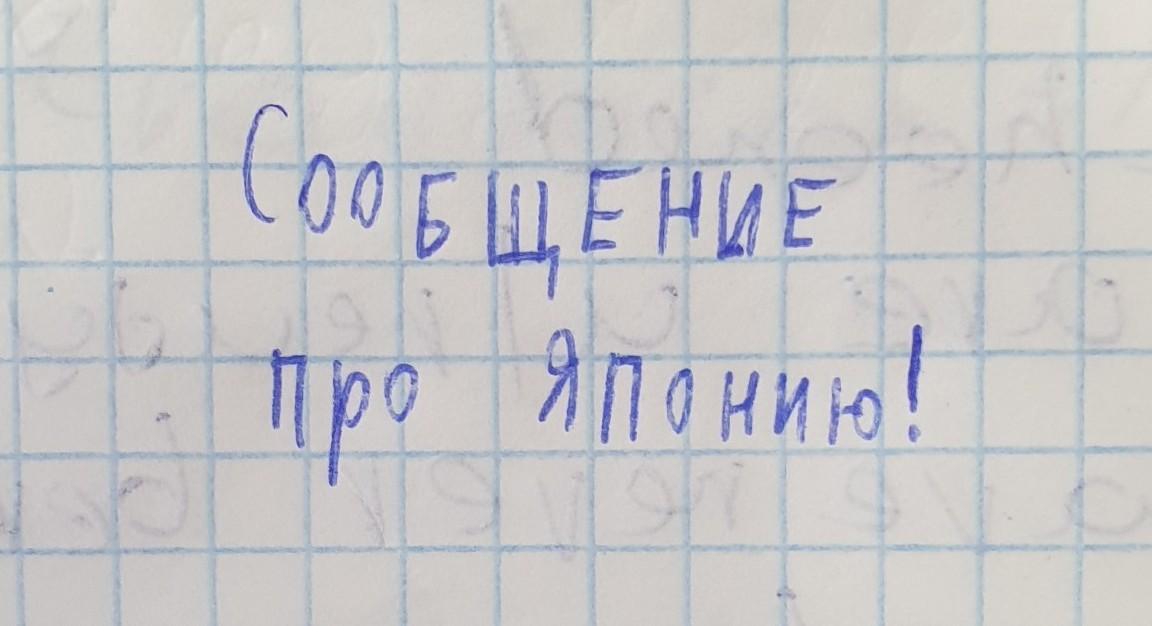 СооБЩЕНИЕ
про Японию!